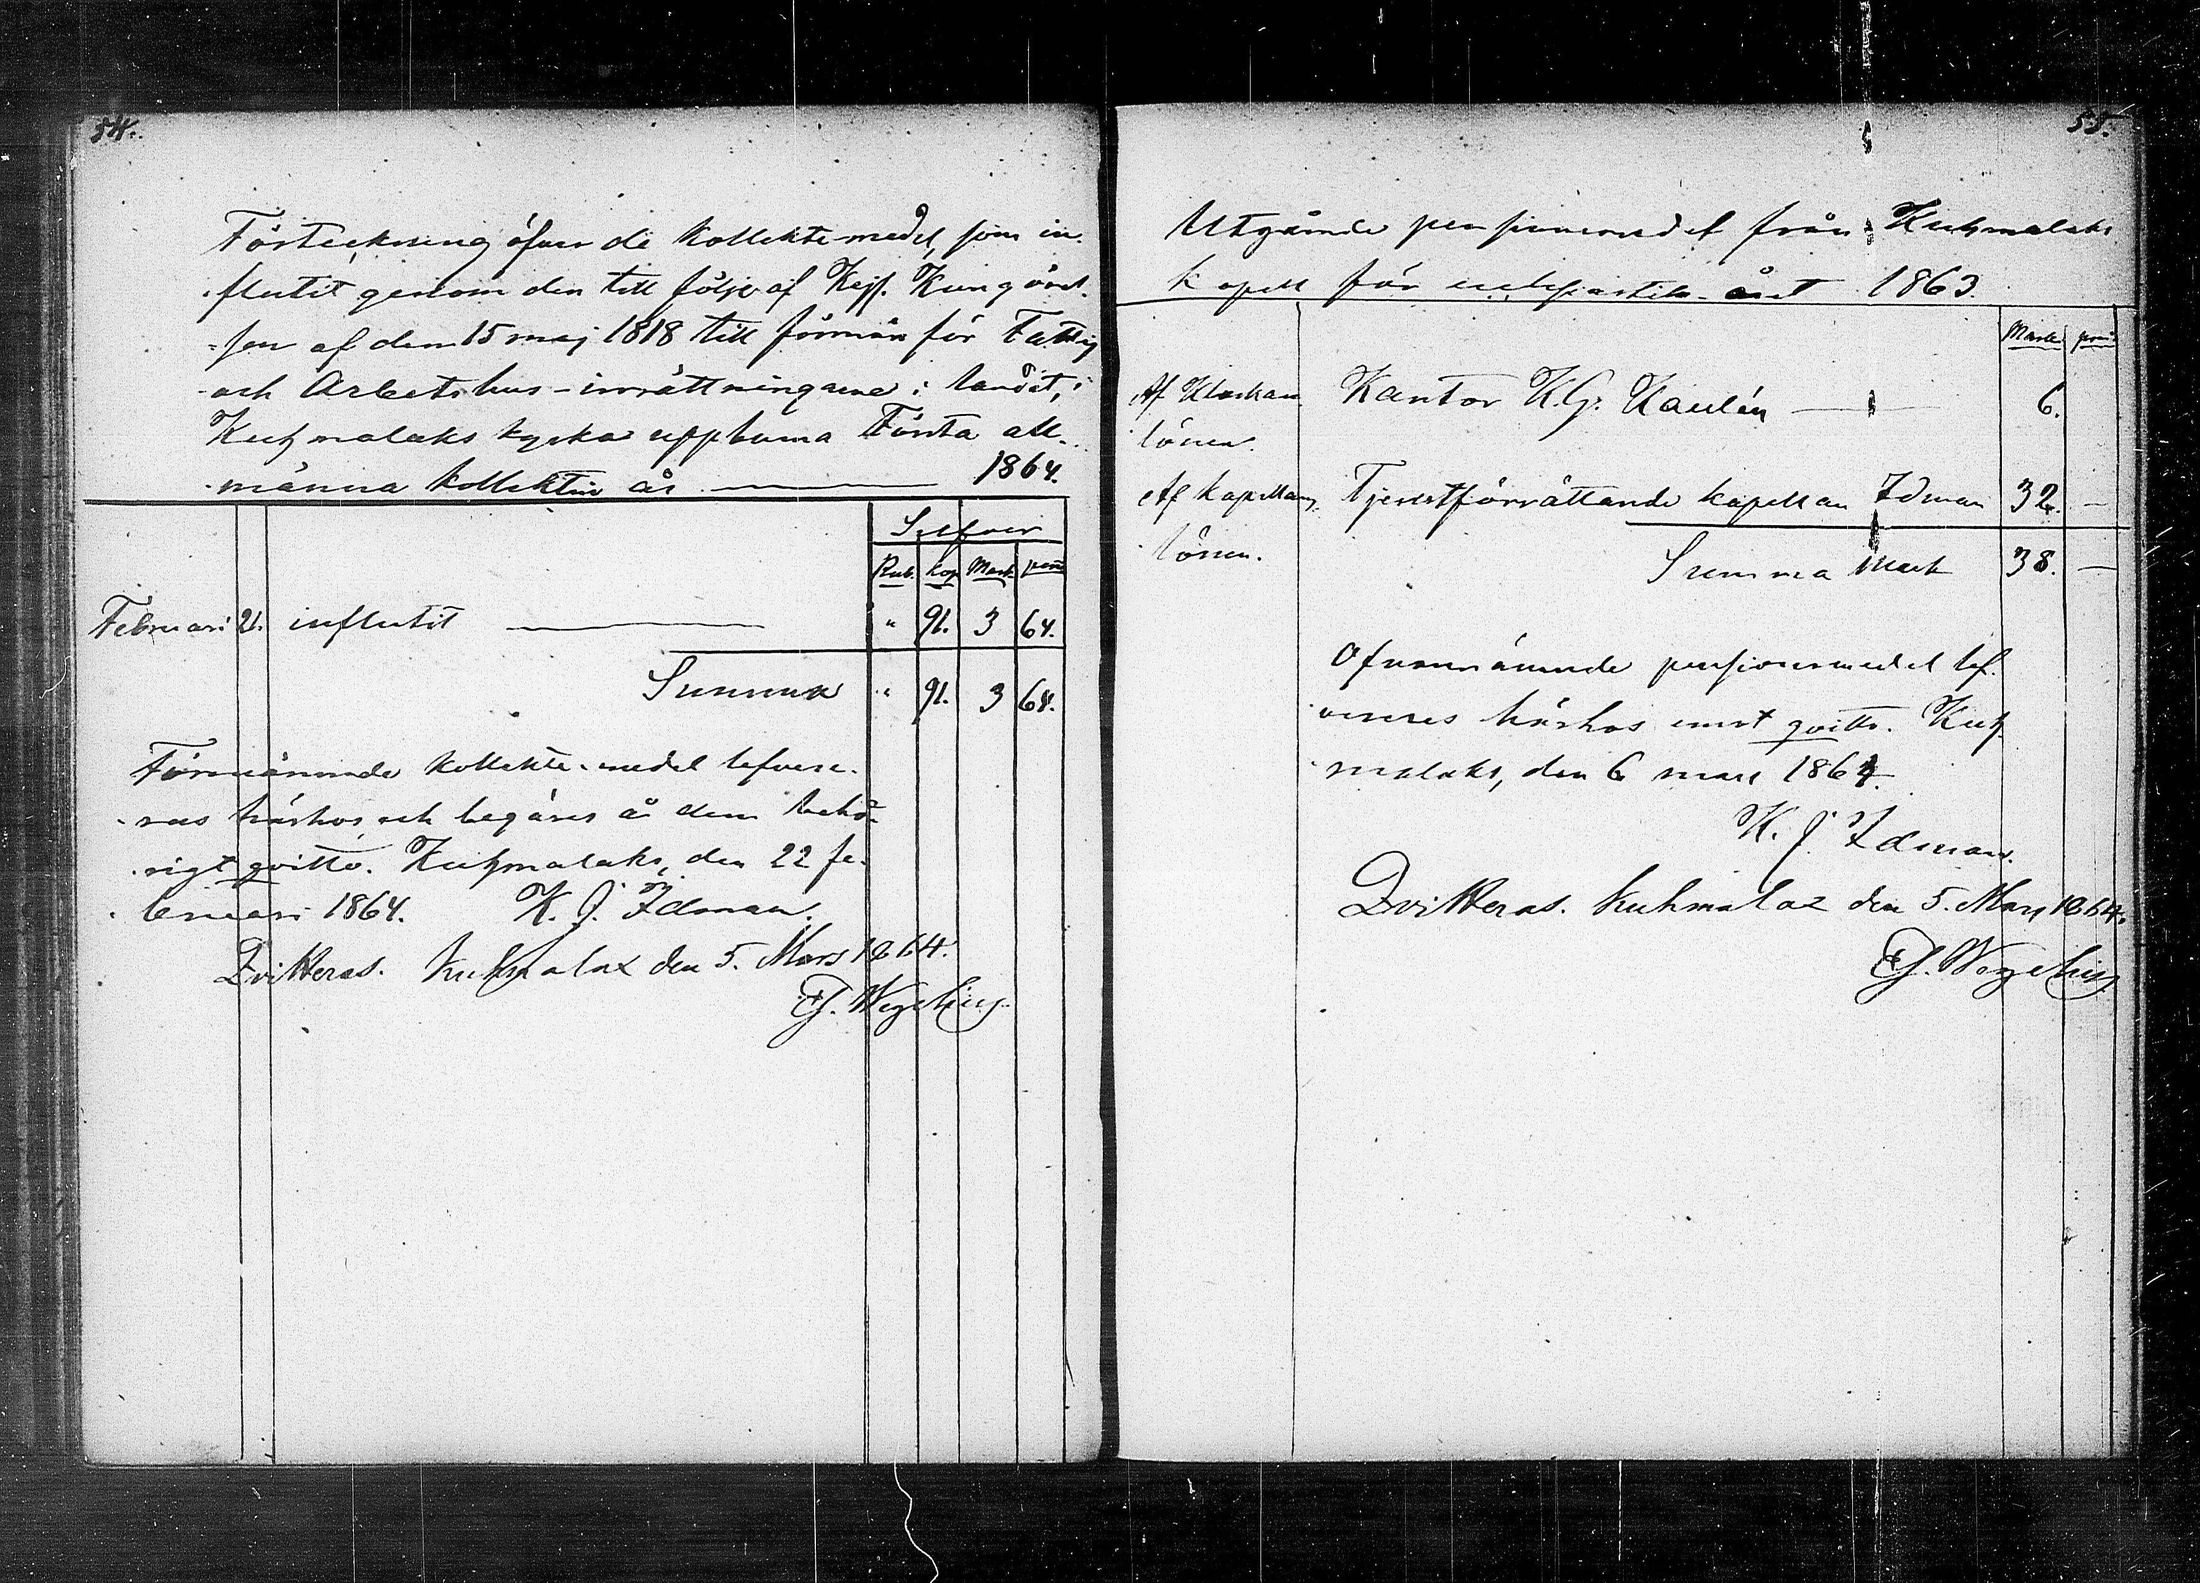 54.
Förteckning öfver de kollekte-medel, som in-
flutit genom den till följe af Kejs. Kungörel-
sen af den 15 maj 1818 till förmån för Fattig
och Arbetshus-inrättningarne i landet, i
Kuhmalaks kyrka uppburna Första all-
männa kollekten år 1864.
Silfver
Rub. kop Mark penni
Februari 21. influtit " 91. 3 64.
Summa " 91. 3 64.
Förenämnde kollekte-medel lefvere-
ras härhos och begäres å dem behö-
rigt qvitto. Kuhmalaks, den 22 fe-
bruari 1864. K. J. Idman.
Qvitteras. Kuhmalax den 5. Mars 1864.
G. Wegelius
55.
Utgående pensionsmedel från Kuhmalaks
kapell för ecklesiastik-året 1863.
Mark penni
Af Klockare Kantor K. G. 6.
lönen.
Af kapellans Tjenstförrättande kapellan Idman 32. —
lönen. Summa Mark 38. —
Ofvannämnde pensionsmedel lef-
vereres härhos emot qvitto. Kuh
malaks, den 6 mars 1864.
K. J. Idman.
Qvitteras. Kuhmalax den 5. Mars 1864.
G. Wegelius